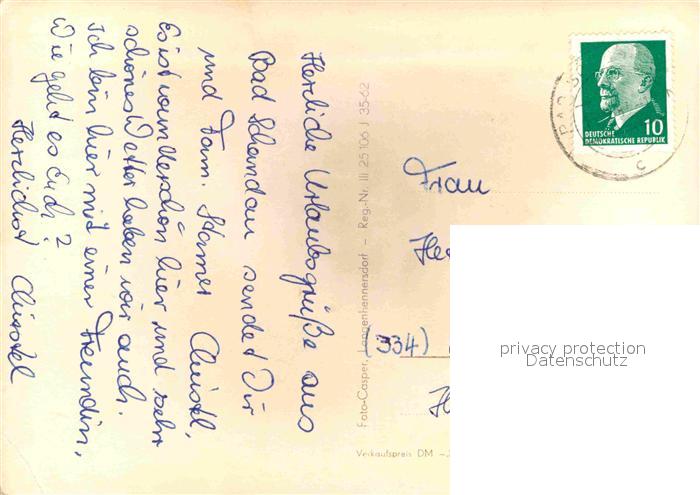 Herzliche Urlaubsgrüße aus
Bad Schandau sendet Dir
und Fam. Christl,
Es ist wunderschön hier und sehr
schönes Wetter haben wir auch.
Ich bin hier mit einer Freundin,
Wie geht es Euch?
Herzlichst Christel
Foto-Casper, Langenhennersdorf – Reg.-Nr. III 25 106 I 35-62
Verkaufspreis DM
BAD
DEUTSCHE
DEMOKRATISCHE REPUBLIK
10
Frau
(334)
privacy protection
Datenschutz